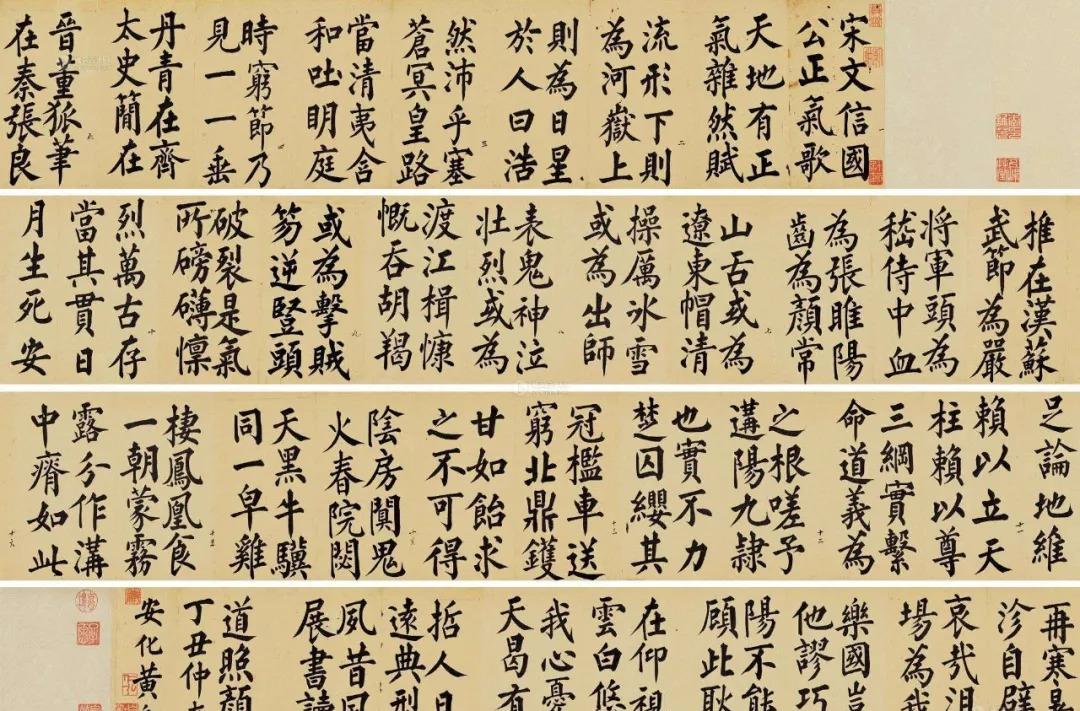 宋文信國
公正氣歌
天地有正
氣雜然賦
流形下則
為河嶽上
則為日星
於人曰浩
然沛乎塞
蒼冥皇路
當清夷含
和吐明庭
時窮節乃
見一一垂
丹青在齊
太史簡在
晉董狐筆
在秦張良
椎在漢蘇
武節為嚴
將軍頭為
嵇侍中血
為張睢陽
齒為顏常
山舌或為
遼東帽清
操厲冰雪
或為出師
表鬼神泣
壯烈或為
渡江楫慷
慨吞胡羯
或為擊賊
笏逆豎頭
破裂是氣
所磅礴凜
烈萬古存
當其貫日
月生死安
足論地維
賴以立天
柱賴以尊
三綱實繫
命道義為
之根嗟予
遘陽九隸
也實不力
楚囚纓其
冠檻車送
窮北鼎鑊
甘如飴求
之不可得
陰房闃鬼
火春院閟
天黑牛驥
同一皁雞
棲鳳凰食
一朝蒙霧
露分作溝
中瘠如此
再寒
沴自辟
哀哉沮
場為我
樂國豈
他謬巧
陽不能
顧此耿
在仰視
雲白悠
我心憂
天曷有
哲人日
遠典型
夙昔
展書讀
道照顏
丁丑仲
安化黃